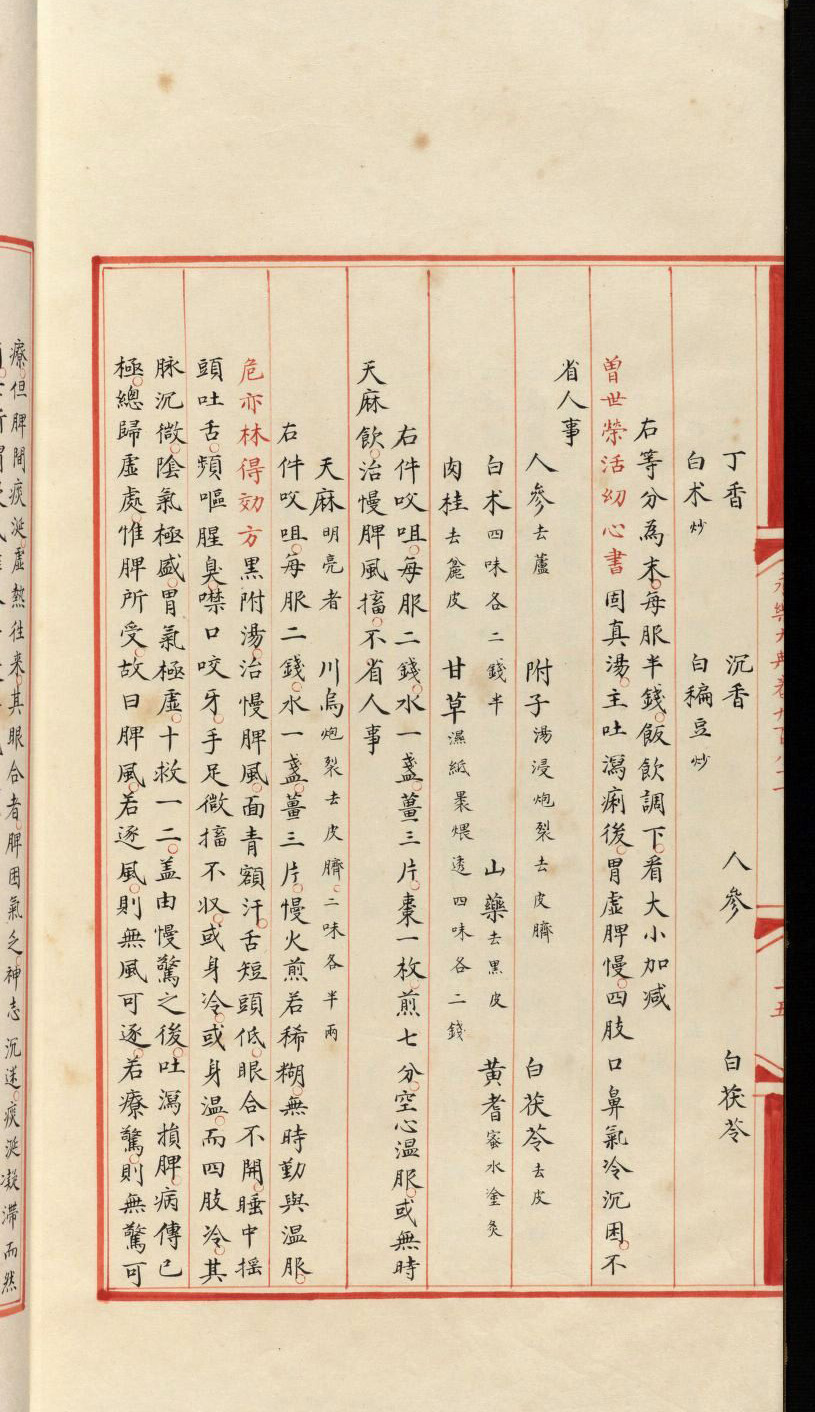 永樂大典卷九百八十
十五
丁香　沉香　人參　白茯苓
白术炒　白稨豆炒
右等分為末每服半錢飯飲調下看大小加减
曾世榮活幼心書固真湯主吐瀉痢後胃虛脾慢四肢口鼻氣冷沉困不
省人事
人參去蘆　附子湯浸炮裂去皮臍　白茯苓去皮
白术四味各二錢半　山藥去黑皮　黃耆蜜水塗炙
肉桂去麄皮　甘草濕紙裹煨透四味各二錢
右件㕮咀每服二錢水一盞薑三片棗一枚煎七分空心温服或無時
天麻飲治慢脾風搐不省人事
天麻明亮者　川烏炮裂去皮臍二味各半兩
右件㕮咀每服二錢水一盞薑三片慢火煎若稀糊無時勤與温服
危亦林得効方黑附湯治慢脾風面青額汗舌短頭低眼合不開睡中摇
頭吐舌頻嘔腥臭噤口咬牙手足微搐不収或身冷或身温而四肢冷其
脉沉微陰氣極盛胃氣極虛十救一二盖由慢驚之後吐瀉損脾病傳已
極總歸虛處惟脾所受故曰脾風若逐風則無風可逐若療驚則無驚可
療但脾間痰涎虛熱往來其眼合者脾困氣乏神志沉迷痰涎凝滯而然